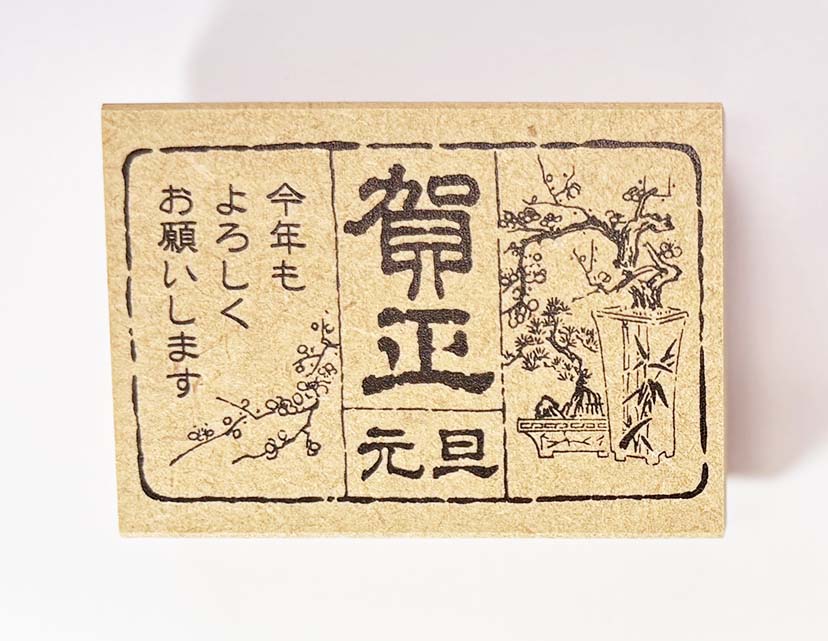 賀正
元旦
今年も
よろしく
お願いします